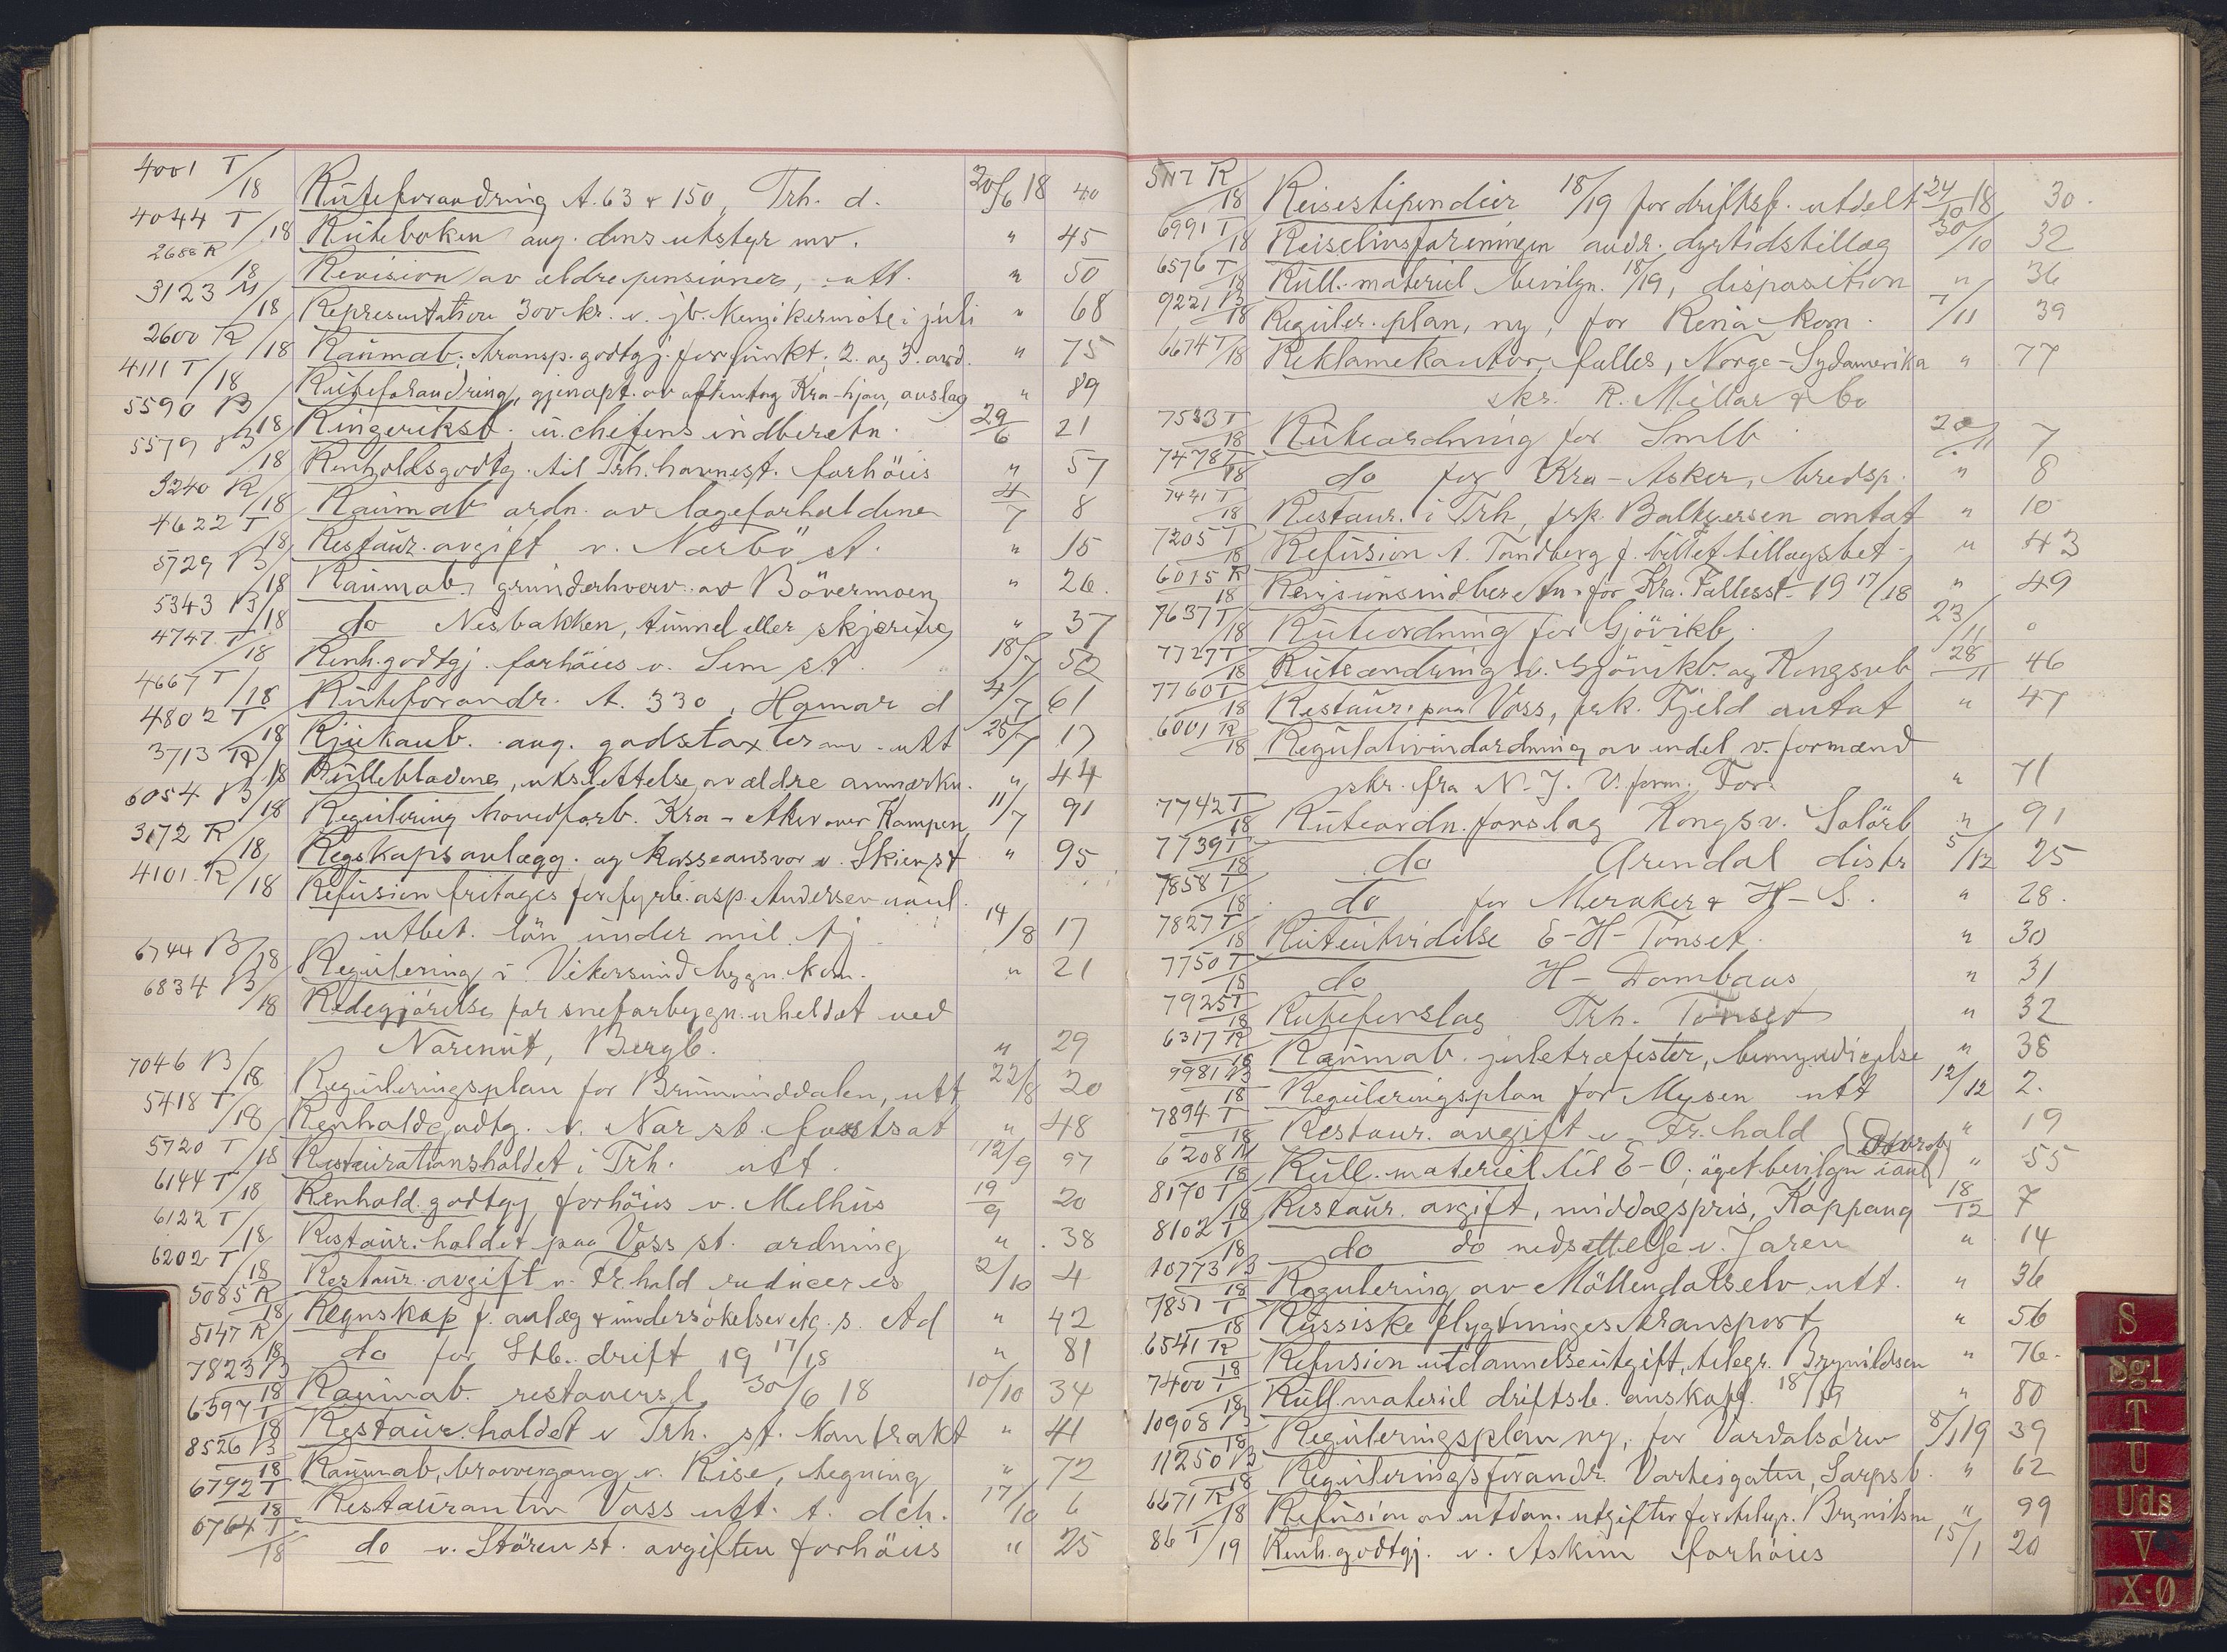 4001 T/18 Ruteforandring t. 63 & 150, Trh. d. 20/6 18 40
4044 T/18 Ruteboken ang. dens utstyr mv. " 45
2688 R/18 Revision av eldre pensioner, utt. " 50
3123 M/18 Representation 300 kr. v. jb. kemikermöte i juli " 68
2600 R/18 Raumab. transp. godtgj. for funkt. 2. og 3. avd. " 75
4111 T/18 Ruteforandring, gjenopt. av aftentog Kra-hjon, avslag " 89
5590 B/18 Ringeriksb. u.chefens indberetn. 29/6 21
5579 B/18 Renholdsgodtg. til Trh. havnest. forhöies " 57
3240 R/18 Raumab ordn. av lægeforholdene 4/7 8
4622 T/18 Restaur. avgift v. Nærbö st. " 15
5729 B/18 Raumab. grunderhverv av Bövermoen " 26.
5343 B/18 do Nesbakken, tunnel eller skjæring " 37
4747 T/18 Renh. godtgj. forhöies v. Sem st. 18/7 52
4667 T/18 Ruteforandr. t. 330, Hamar d 4/7 61
4802 T/18 Rjukanb. ang. godstaxter mv. utt 25/7 17
3713 R/18 Rullebladene, utslettelse av ældre anmærkn. " 44
6054 B/18 Regulering hovedforb. Kra - Aker over Kampen 11/7 91
3172 R/18 Regskapsanlægg. og kasseansvar v. Skien st " 95
4101 R/18 Refusion fritages for fyrb. asp. Andersen
utbet. lön under mil. tj 14/8 17
6744 B/18 Regulering i Vikersund bygn. kom. " 21
6834 B/18 Redegjörelse for sneforbygn. uheldet ved
Narenut, Bergb. " 29
7046 B/18 Reguleringsplan for Brumunddalen, utt 22/8 20
5418 T/18 Renholdsgodtg. v. Nar st. fastsat " 48
5720 T/18 Restaurationsholdet i Trh. utt. 12/9 97
6144 T/18 Renhold.godtgj. forhöies v. Melhus 19/9 20
6122 T/18 Restaur.holdet paa Voss st. ordning " 38
6202 T/18 Restaur. avgift v. Fr.hald reduceres 2/10 4
5085 R/18 Regnskap f. anlæg & undersökelser etc. s. Ad " 42
5147 R/18 do for Stb. drift 19 17/18 " 81
7823 B/18 Raumab. restaversl. 30/6 18 10/10 34
6597 T/18 Restaur.holdet v Trh. st. kontrakt " 41
8526 B/18 Raumab, brovergang v. Rise, tegning " 72
6792 T/18 Restauranten Voss utt. t. dch. 17/10 6
6764 T/18 do v. Stören st. avgiften forhöies " 25
5117 R/18 Reisestipendier 18/19 for driftsf. utdelt 24/10 18 30.
6991 T/18 Reiselivsforeningen andr. dyrtidstillæg 30/10 32
6576 T/18 Rull. materiel bevilgn. 18/19, disposition " 36
9221 B/18 Reguler. plan, ny, for Rena kom. 7/11 39
6674 T/18 Reklamekontor, fælles, Norge-Sydamerika " 77
skr. R. Millar & Co
7533 T/18 Ruteordning for Smlb. 20/11 7
7478 T/18 do for Kra - Asker, bredsp. " 8
7421 T/18 Restaur. i Trh, frk. Baltzersen antat " 10
7205 T/18 Refusion t. Tandberg f. billettillægsbet. " 43
6015 R/18 Revisionsindberetn. for Kra. Fællesst. 19 17/18 " 49
7637 T/18 Ruteordning for Gjövikb. 23/11 0
7727 T/18 Ruteændring v. Gjövikb. og Kongsvb 28/11 46
7760 T/18 Restaur. paa Voss, frk. Fjeld antat " 47
6001 R/18 Regulativindordning av endel v. formænd
skr. fra N. J. V. form. For. " 71
7742 T/18 Ruteordn. forslag Kongsv. Solörb " 91
7739 T/18 do Arendal distr 5/12 25
7858 T/18 do for Meraker & H-S. " 28.
7827 T/18 Ruteutvidelse E-H-Tönset. " 30
7750 T/18 do H - Dombaas " 31
7925 T/18 Ruteforslag Trh. Tönset " 32
6317 R/18 Raumab. juletræfester, bemyndigelse " 38
9981 B/18 Reguleringsplan for Mysen utt 12/12 2.
7894 T/18 Restaur. avgift v. Fr. hald " 19
6208 M/18 Rull. materiel til E-O; öget bevilgn i anl (Dovreb) " 55
8170 T/18 Restaur. avgift, middagspris, Koppang 18/12 7
8102 T/18 do do nedsættelse v. Jaren " 14
10773 B/18 Regulering av Möllendalselv utt. " 36
7851 T/18 Russiske flygtninges transport " 56
6541 R/18 Refusion utdannelseutgift, telegr. Brynildsen " 76.
7400 T/18 Rull. materiel driftsb. anskaff. 18/19 " 80
10908 B/18 Reguleringsplan ny, for Vardalsören 8/1 19 39
11250 B/18 Reguleringsforandr. Varteigaten, Sarpsb. " 62
6671 R/18 Refusion av utdan. utgifter for telegr. Brynilsen " 99
86 T/19 Renh.godtgj. v. Askim forhöies 15/1 20
S
Sgl
T
U
Uds
V
X-Ø